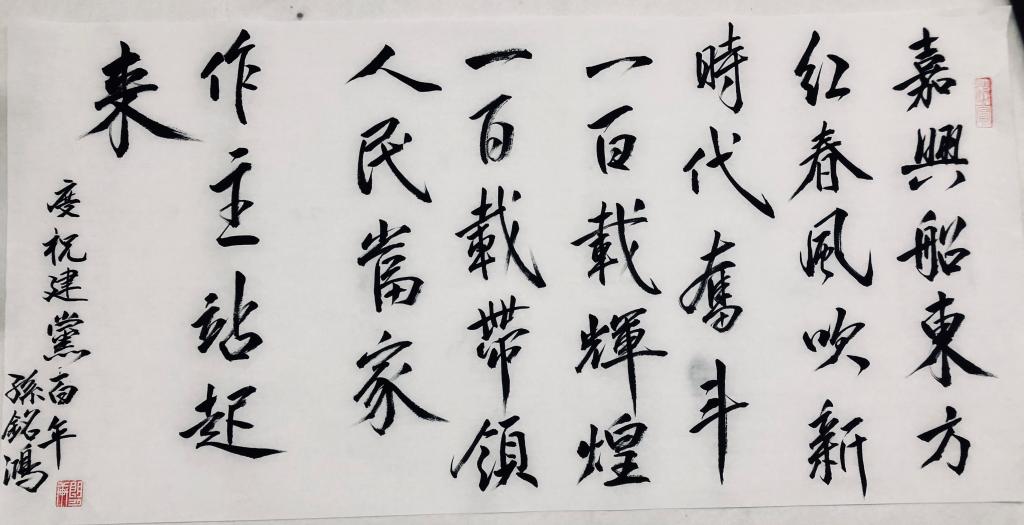 嘉興船東方
紅春風吹新
時代奮斗
一百載輝煌
一百載帶領
人民當家
作主站起
来
度祝建黨百年
孫銘鴻